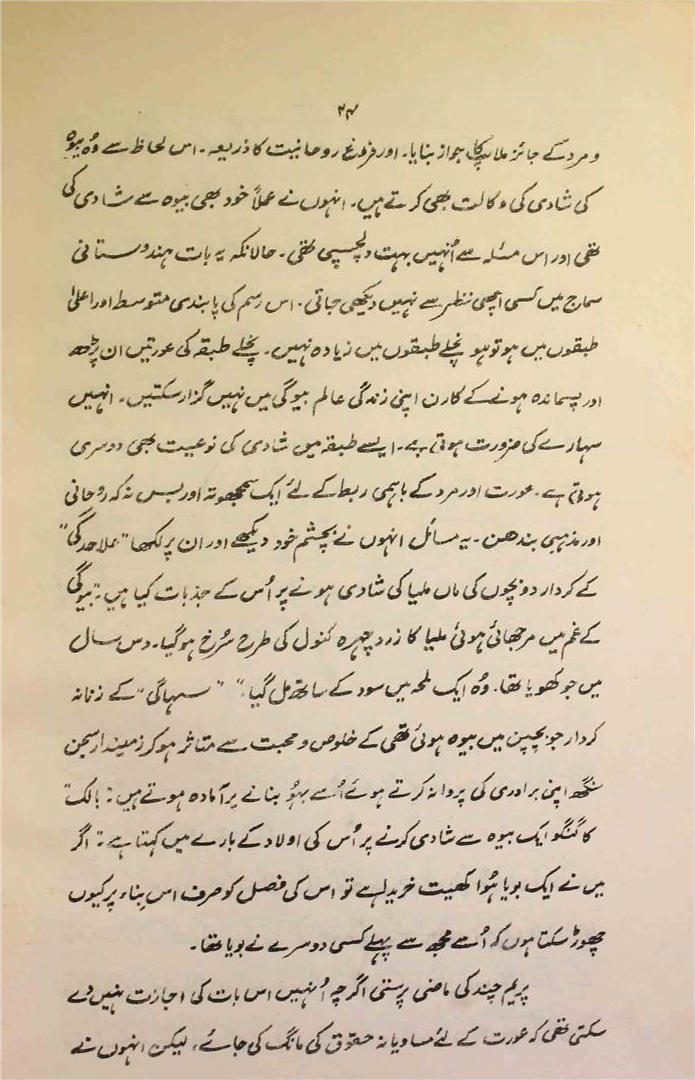 ۲۴
و مرد کے جائز ملاپ کا جواز بنایا۔ اور فروغ روحانیت کا ذریعہ۔ اس لحاظ سے وُہ بیوہ
کی شادی کی وکالت بھی کرتے ہیں۔ انہوں نے عملاً خود بھی بیوہ سے شادی کی
تھی اور اس مسئلہ سے اُنہیں بہت دلچسپی تھی۔ حالانکہ یہ بات ہندوستانی
سماج میں کسی اچھی نظر سے نہیں دیکھی جاتی۔ اس رسم کی پابندی متوسط اور اعلیٰ
طبقوں میں ہو تو ہو نچلے طبقوں میں زیادہ نہیں۔ نچلے طبقہ کی عورتیں ان پڑھ
اور پسماندہ ہونے کے کارن اپنی زندگی عالم بیوگی میں نہیں گزار سکتیں۔ انہیں
سہارے کی ضرورت ہوتی ہے۔ ایسے طبقہ میں شادی کی نوعیت بھی دوسری
ہوتی ہے۔ عورت اور مرد کے باہمی ربط کے لئے ایک سمجھوتہ اور بس نہ کہ روحانی
اور مذہبی بندھن۔ یہ مسائل انہوں نے بچشم خود دیکھے اور ان پر لکھا "علاحدگی"
کے کردار دو بچوں کی ماں ملیا کی شادی ہونے پر اُس کے جذبات کیا ہیں۔ "بیوگی
کے غم میں مرجھائی ہوئی ملیا کا زرد چہرہ کنول کی طرح سُرخ ہو گیا۔ دس سال
میں جو کھویا تھا۔ وُہ ایک لمحہ میں سود کے ساتھ مل گیا۔" "سہاگی" کے زنانہ
کردار جو بچپن میں بیوہ ہوئی تھی کے خلوص و محبت سے متاثر ہو کر زمیندار سجن
سنگھ اپنی برادری کی پروا نہ کرتے ہوئے اُسے بہُو بنانے پر آمادہ ہوتے ہیں۔ "بالک"
کا گنگو ایک بیوہ سے شادی کرنے پر اُس کی اولاد کے بارے میں کہتا ہے۔ "اگر
میں نے ایک بویا ہُوا کھیت خریدا ہے تو اس کی فصل کو صرف اس بناء پر کیوں
چھوڑ سکتا ہوں کہ اُسے مجھ سے پہلے کسی دوسرے نے بویا تھا۔
پریم چند کی ماضی پرستی اگرچہ اُنہیں اس بات کی اجازت نہیں دے
سکتی تھی کہ عورت کے لئے مساویانہ حقوق کی مانگ کی جائے، لیکن انہوں نے